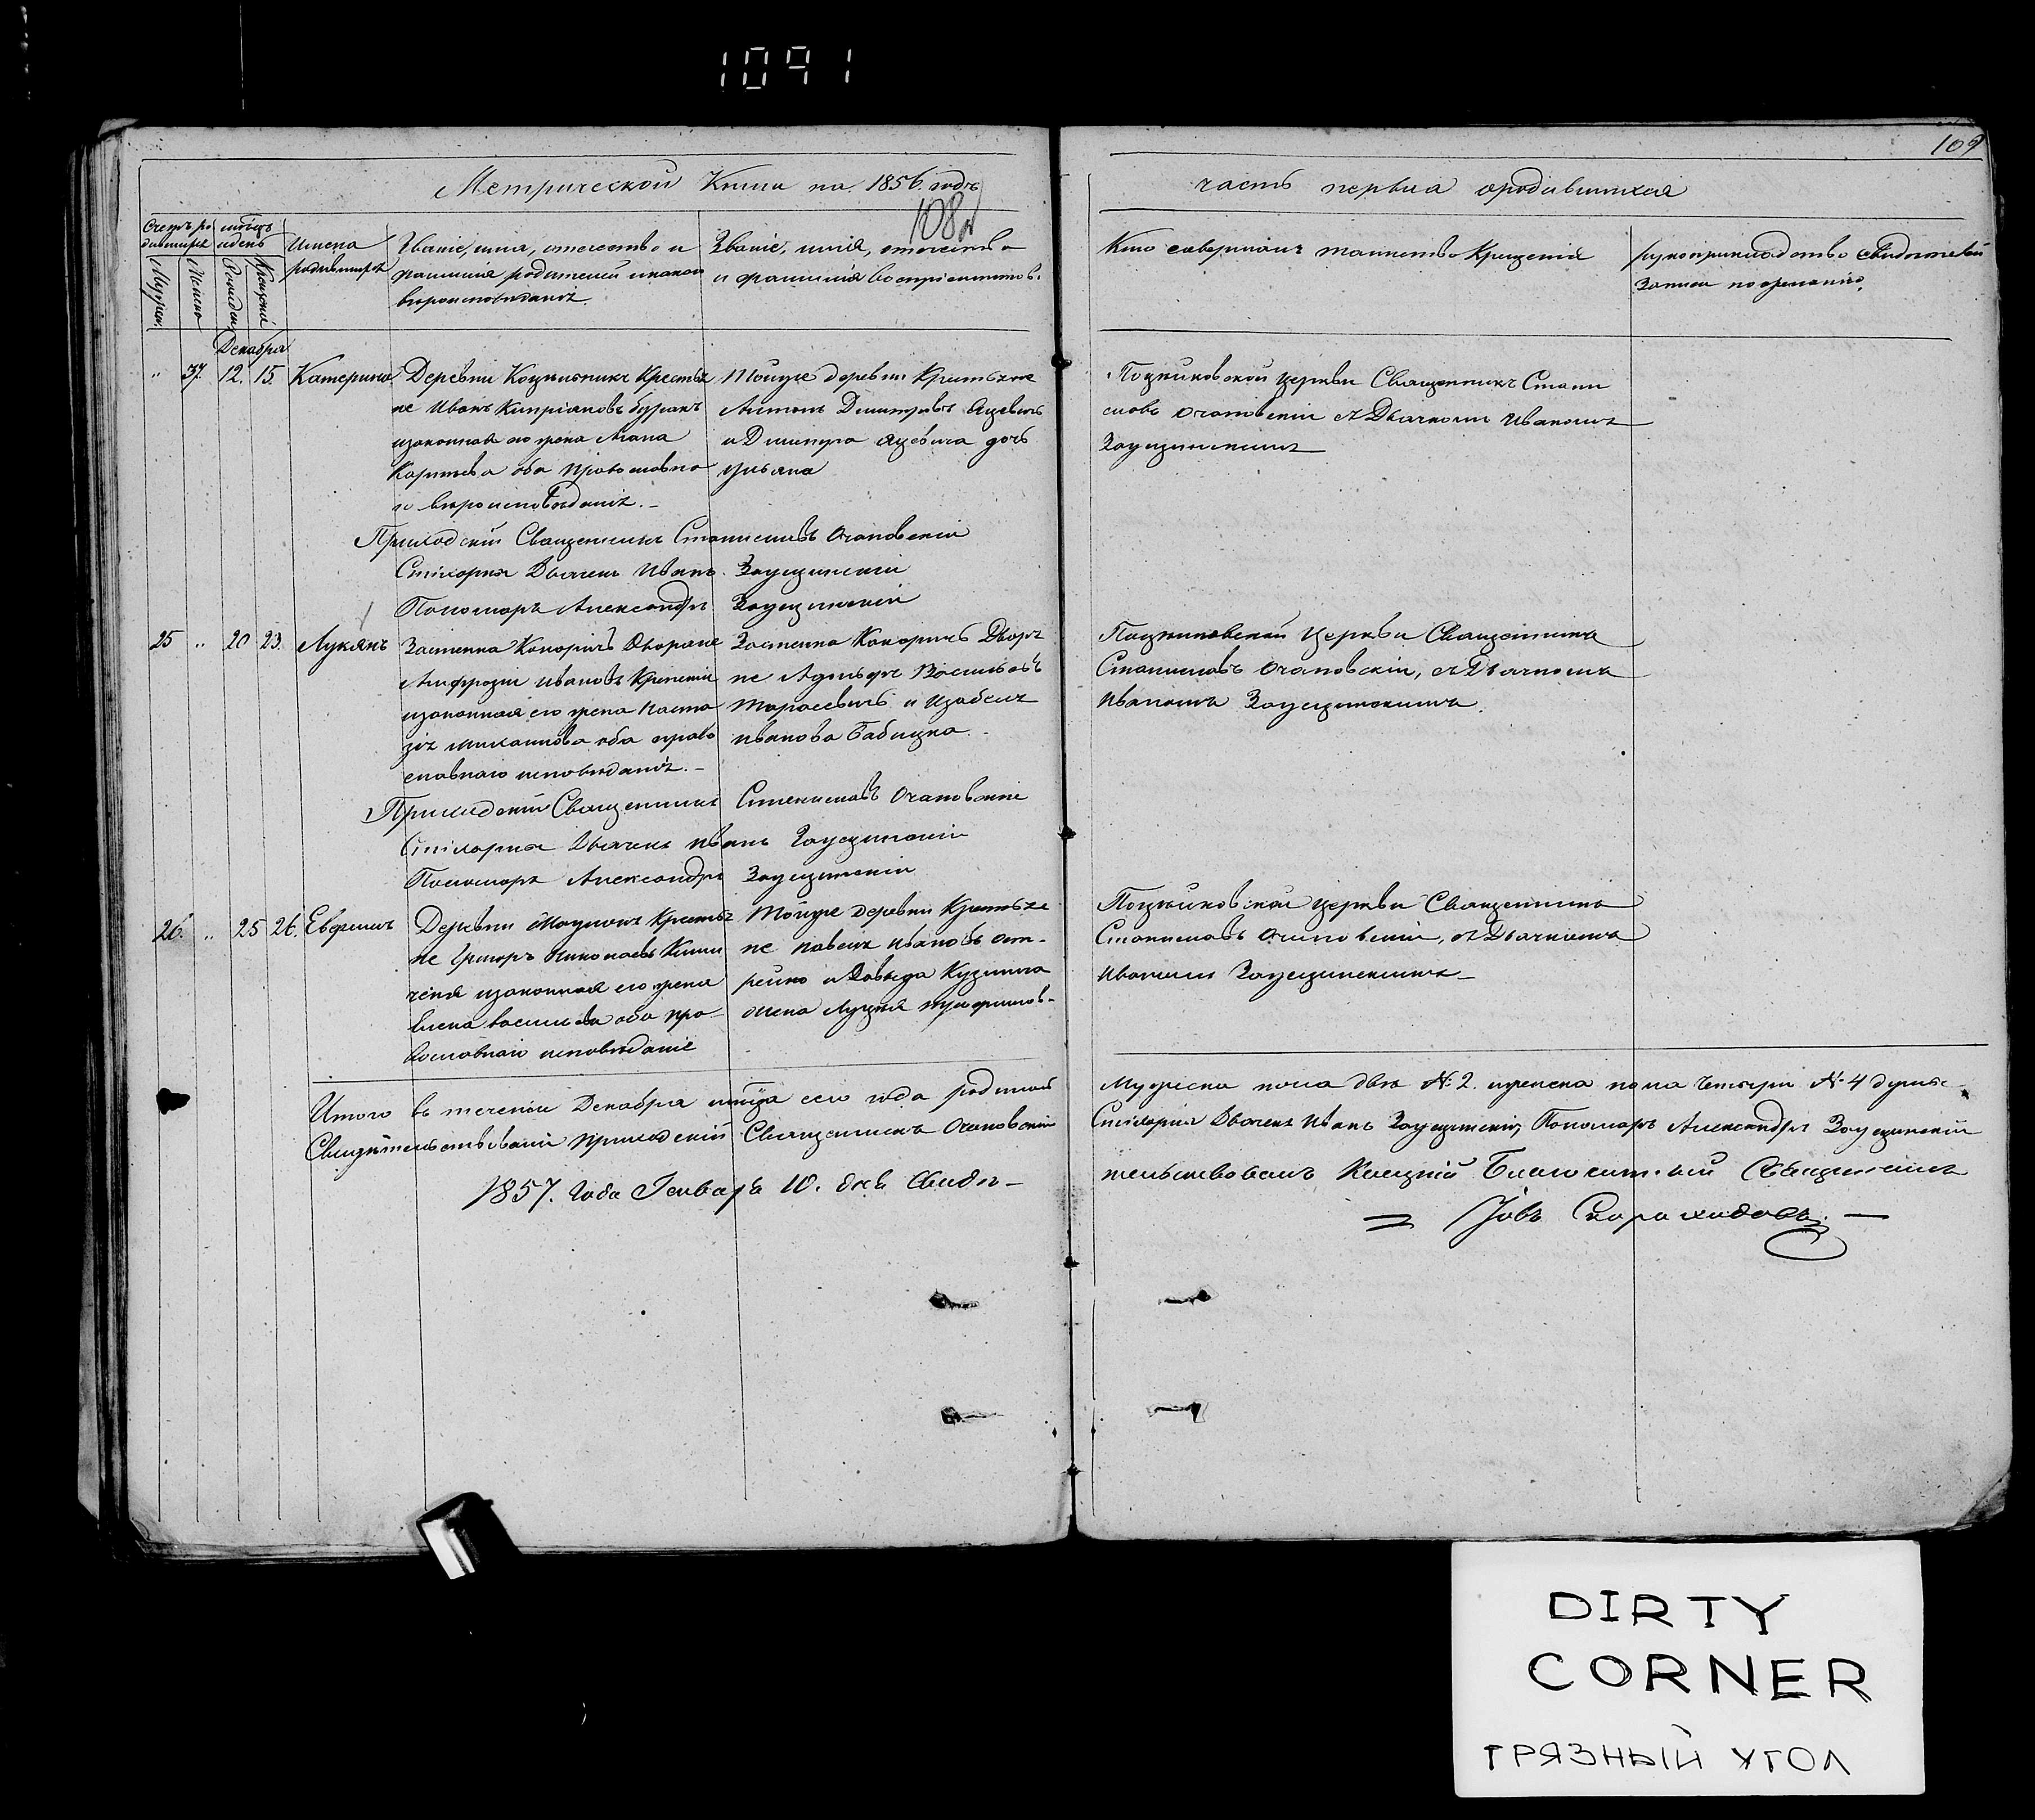 1091
109
Метрической Книги на 1856 годъ
108
часть первая о родившихся
Счетъ ро
дившихся
мѣсяцъ
и день
Имена
родившихъ
Званіе, имя, отчество и
фамилия родителей и какого
вѣроисповѣданія.
Званіе, имя, отчество
и фамилія воспріемниковъ.
Кто совершалъ таинство Крещенія
рукоприкладство свидѣтелей
записи по желанію.
Мужеск.
Женска
Рожден.
Крещенія
Декабря
" 37. 12. 15. Катерина
Деревни Крестья
не Иванъ Кипріановъ
и законная его жена Анна
Карпова оба Православна
го вѣроисповѣданія.-
Тойже деревни Крестьяне
Антонъ Дмитріевъ Яцевичь
и Дмитра Яцевича дочь
Ульяна
Поцѣйковской Церкви Священникъ Стани
славъ Очаповскій съ Дьячкомъ Иваномъ
Заусцинскимъ
Приходскій Священникъ Станиславъ Очаповскій
Стихарный Дьячекъ Иванъ Заусцинскій
Пономарь Александръ Заусцинскій
25 " 20 23. Лукянъ
Застенка Конюричь Дворяне
Амфрозій Ивановъ
и законная его жена Наста
зія Михайлова оба право
славнаго исповѣданія.-
Застенка Конюричь Дворя
не Адольфъ Васильевъ
Тарасевичь и Изабеля
Иванова Бабицка.-
Поцѣйковской Церкви Священникъ
Станиславъ Очаповскій, съ Дьячкомъ
Иваномъ Заусцинскимъ.
Приходскій Священникъ Станиславъ Очаповскій
Стихарный Дьячекъ Иванъ Заусцинскій
Пономарь Александръ Заусцинскій
26. " 25 26.
Деревни Крестья
не Григоръ Николаевъ
и законная его жена
Елена Васильева оба пра-
вославнаго исповѣданіе
Тойже деревни Крестья
не Павелъ Ивановъ Ост-
рейко и Давыда Кузмича
жена Луция
Поцѣйковской Церкви Священникъ
Станиславъ Очаповскій, съ Дьячкомъ
Иваномъ Заусцинскимъ-
Итого въ теченіи Декабря мѣсяца сего года родилось
Мужеска пола двѣ №2. и женска пола четыри №4 души
Свидѣтельствовали Приходскій Священникъ Очаповскій
Стихарный Дьячекъ Иванъ Заусцинскій, Пономарь Александръ Заусцинскій
1857. Года Генваря 10. дня Свидѣ-
тельствовалъ Благочинный Священникъ
= Іовъ Скороходовъ. -
DIRTY
CORNER
ГРЯЗНЫЙ УГОЛ